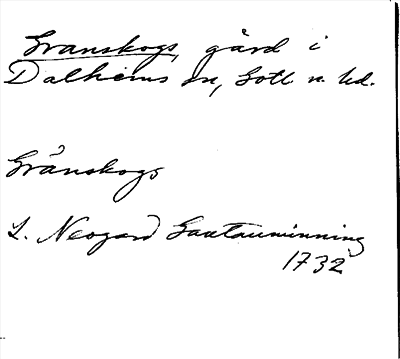 Granskogs, gård i
Dalhems sn, Gotl. n. hd.
Grånskogs
L. Neogard Gautauminning
1732